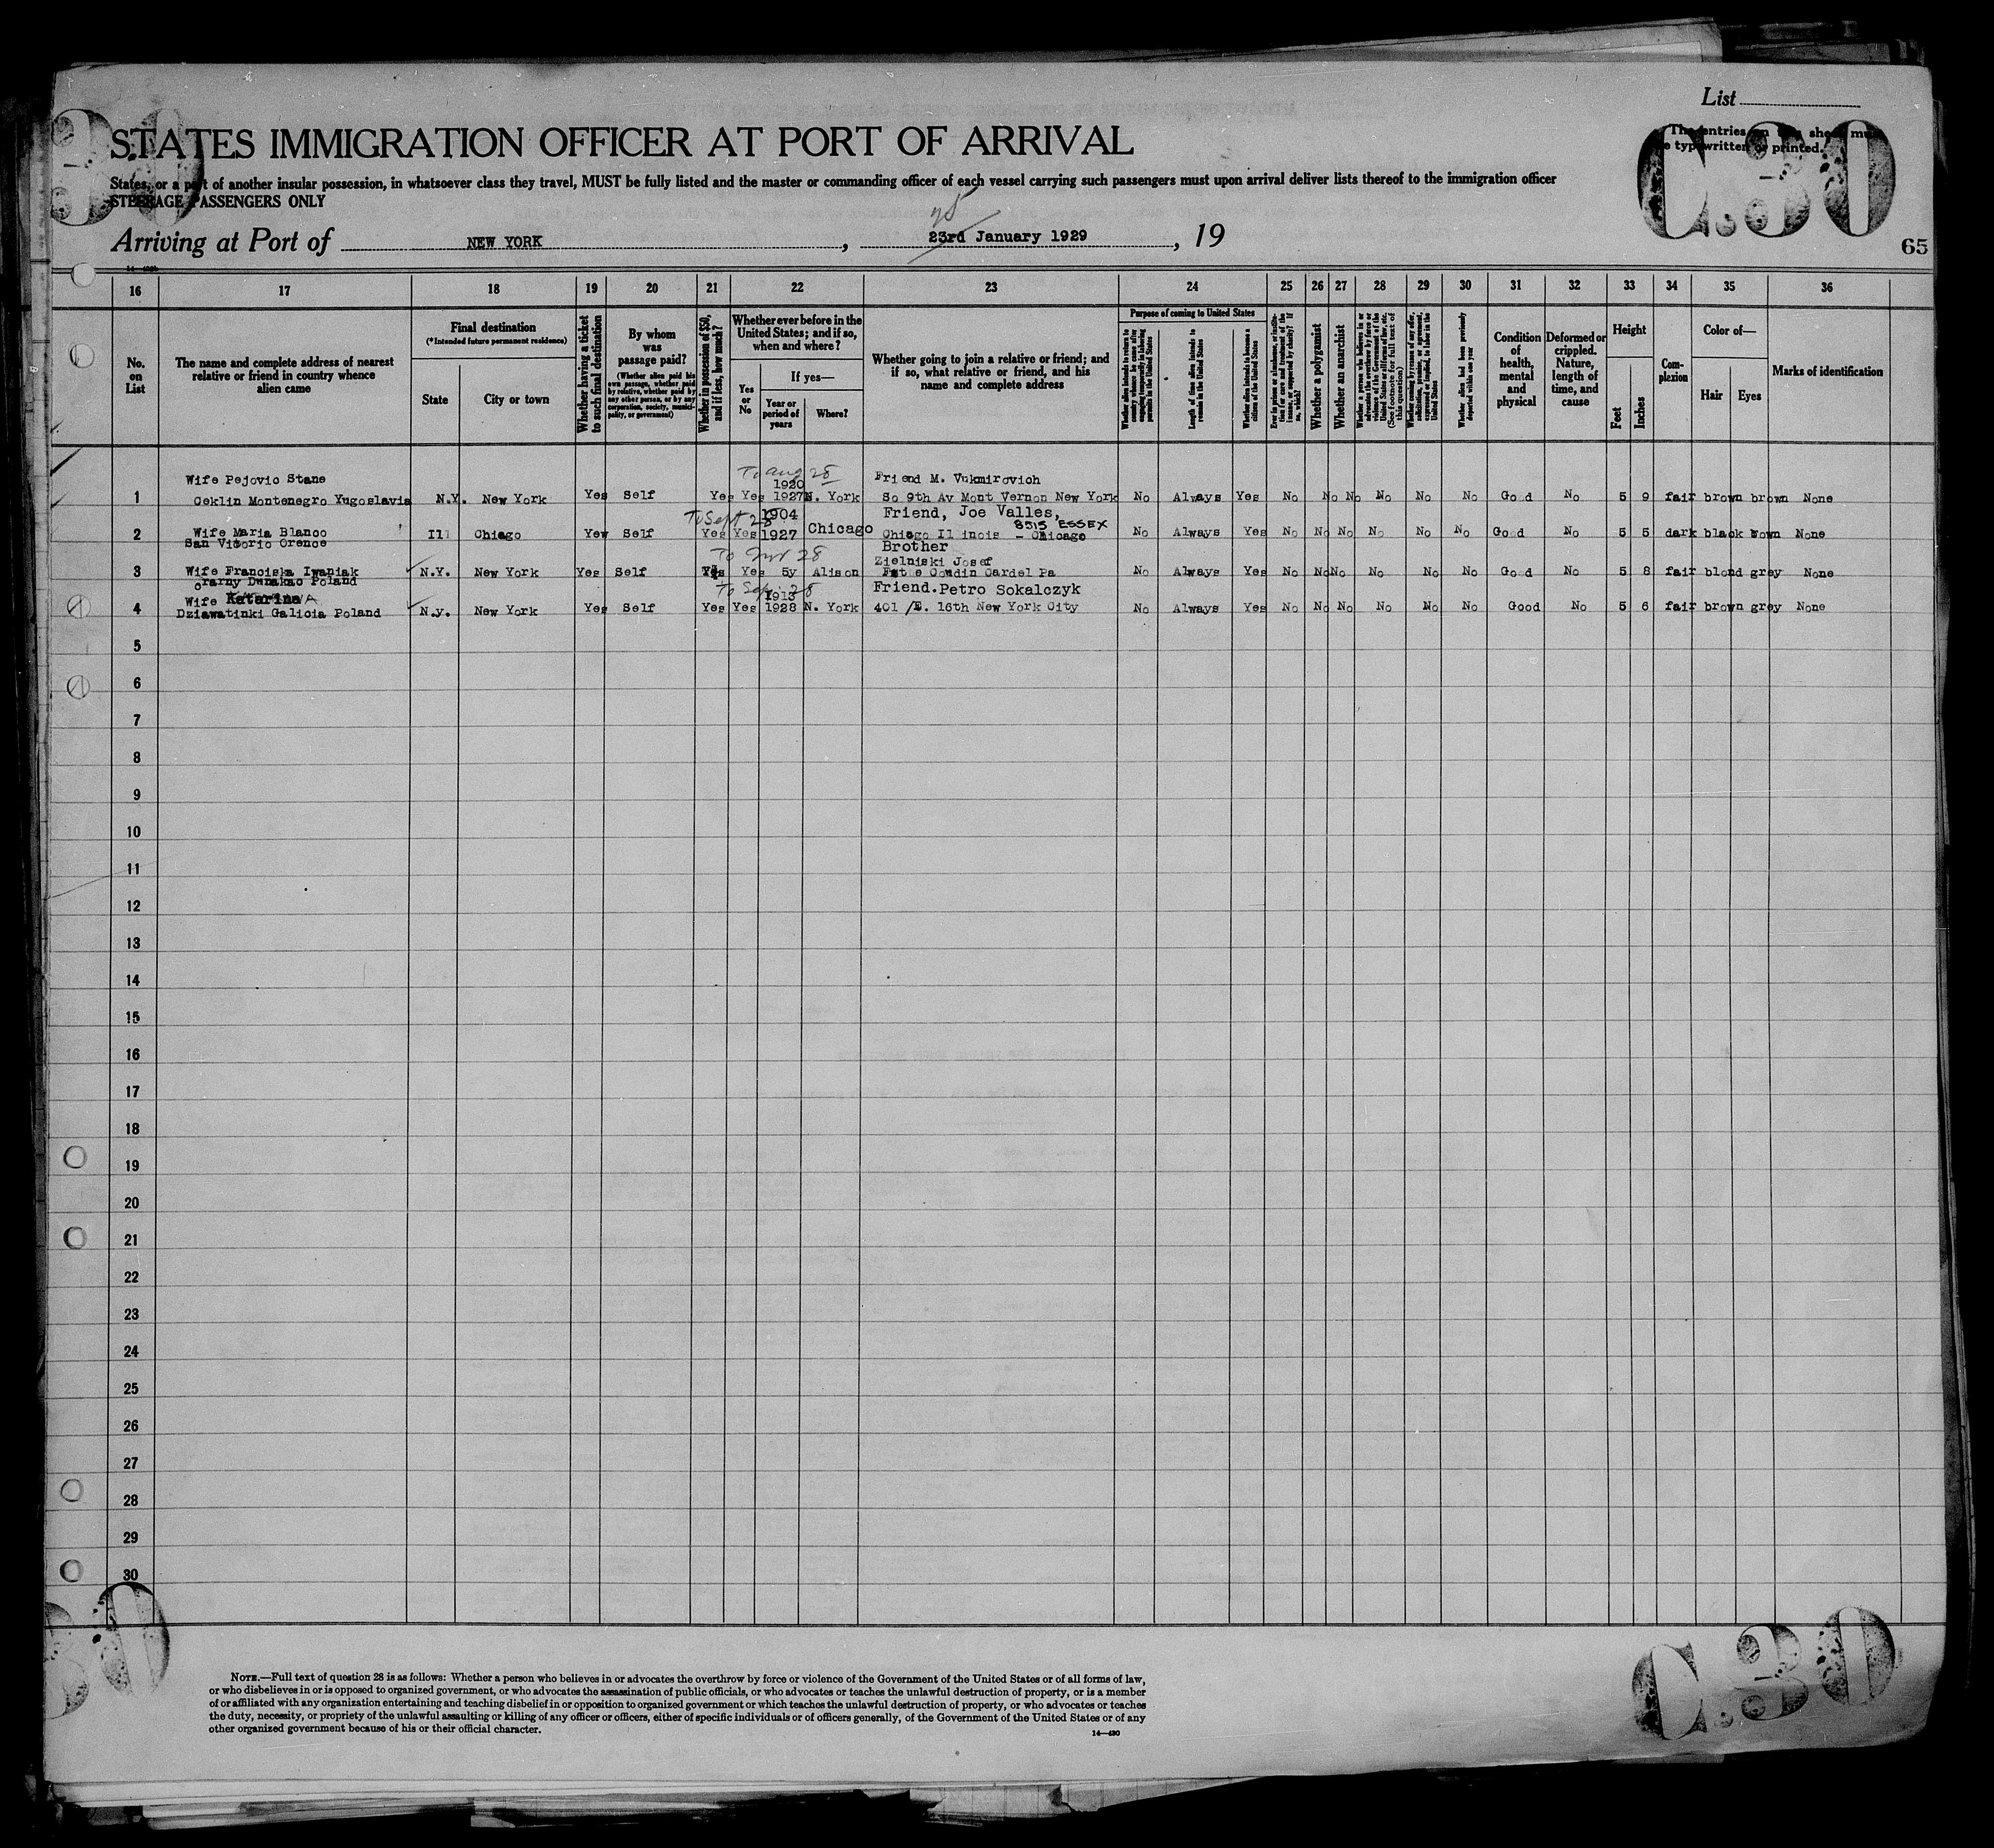 List
C.30
30
The entries on this sheet must
be typewritten or printed.
STATES IMMIGRATION OFFICER AT PORT OF ARRIVAL
States, or a part of another insular possession, in whatsoever class they travel, MUST be fully listed and the master or commanding officer of each vessel carrying such passengers must upon arrival deliver lists thereof to the immigration officer
STEERAGE PASSENGERS ONLY
Arriving at Port of NEW YORK , 23rd January 1929 , 19
65
16 17 18 19 20 21 22 23 24 25 26 27 28 29 30 31 32 33 34 35 36
No. on List
The name and complete address of nearest relative or friend in country whence alien came
Final destination
(*Intended future permanent residence)
State
City or town
Whether having a ticket to such final destination
By whom was passage paid?
(Whether alien paid his own passage, whether paid by relative, whether paid by any other person, or by any corporation, society, municipality, or government)
Whether in possession of $50, and if less, how much?
Whether ever before in the United States; and if so, when and where?
Yes or No
If yes—
Year or period of years
Where?
Whether going to join a relative or friend; and if so, what relative or friend, and his name and complete address
Purpose of coming to United States
Whether alien intends to return to country whence he came after engaging temporarily in laboring pursuits in the United States
Length of time alien intends to remain in the United States
Whether alien intends to become a citizen of the United States
Ever in prison or almshouse, or institution for care and treatment of the insane, or supported by charity? If so, which?
Whether a polygamist
Whether an anarchist
Whether a person who believes in or advocates the overthrow by force or violence of the Government of the United States or all forms of law, etc. (See footnote for full text of this question)
Whether coming by reason of any offer, solicitation, promise, or agreement, expressed or implied, to labor in the United States
Whether alien had been previously deported within one year
Condition of health, mental and physical
Deformed or crippled. Nature, length of time, and cause
Height
Feet
Inches
Complexion
Color of—
Hair
Eyes
Marks of identification
To Aug 28
Wife Pejovic Stane 1920 Friend M. Vukmirovich
1 Ceklin Montenegro Yugoslavia N.Y. New York Yes Self Yes Yes 1927 N. York So 9th Av Mont Vernon New York No Always Yes No No No No No No Good No 5 9 fair brown brown None
To Sept 28 1904 Friend, Joe Valles,
8515 ESSEX
2 Wife Maria Blanco Ill Chiago Yew Self Yes Yes 1927 Chicago Chiago Il inois - Chicago No Always Yes No No No No No No Good No 5 5 dark black brown None
San Vitorio Orence
To 28 Brother
Zielniski Josef
3 Wife Franciska Iwaniak N.Y. New York Yes Self Yes Yes 5y Alison Cowdin Cardel Pa No Always Yes No No No No No No Good No 5 8 fair blond grey None
Poland
To Sep. 28
Wife Katarina 1913 Friend. Petro Sokalczyk
4 Dziawatinki Galicia Poland N.y. New York Yes Self Yes Yes 1928 N. York 401 /E. 16th New York City No Always Yes No No No No No No Good No 5 6 fair brown grey None
5
6
7
8
9
10
11
12
13
14
15
16
17
18
19
20
21
22
23
24
25
26
27
28
29
30
30
C.30
NOTE.—Full text of question 28 is as follows: Whether a person who believes in or advocates the overthrow by force or violence of the Government of the United States or of all forms of law,
or who disbelieves in or is opposed to organized government, or who advocates the assassination of public officials, or who advocates or teaches the unlawful destruction of property, or is a member
of or affiliated with any organization entertaining and teaching disbelief in or opposition to organized government or which teaches the unlawful destruction of property, or who advocates or teaches
the duty, necessity, or propriety of the unlawful assaulting or killing of any officer or officers, either of specific individuals or of officers generally, of the Government of the United States or of any
other organized government because of his or their official character.
14—430